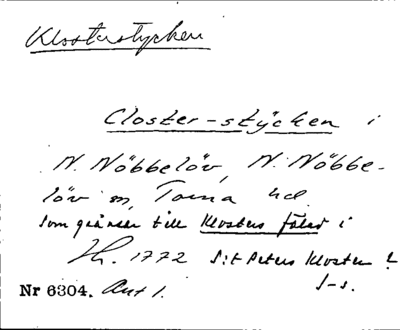 Klosterstycken
Closter-stÿcken i
N. Nöbbelöv, N. Nöbbe-
löv sn, Torna hd.
som gränsar till Klosters fälad i
Lh. 1772 S:t Peters Kloster?
J-s.
Nr 6304. Akt 1.